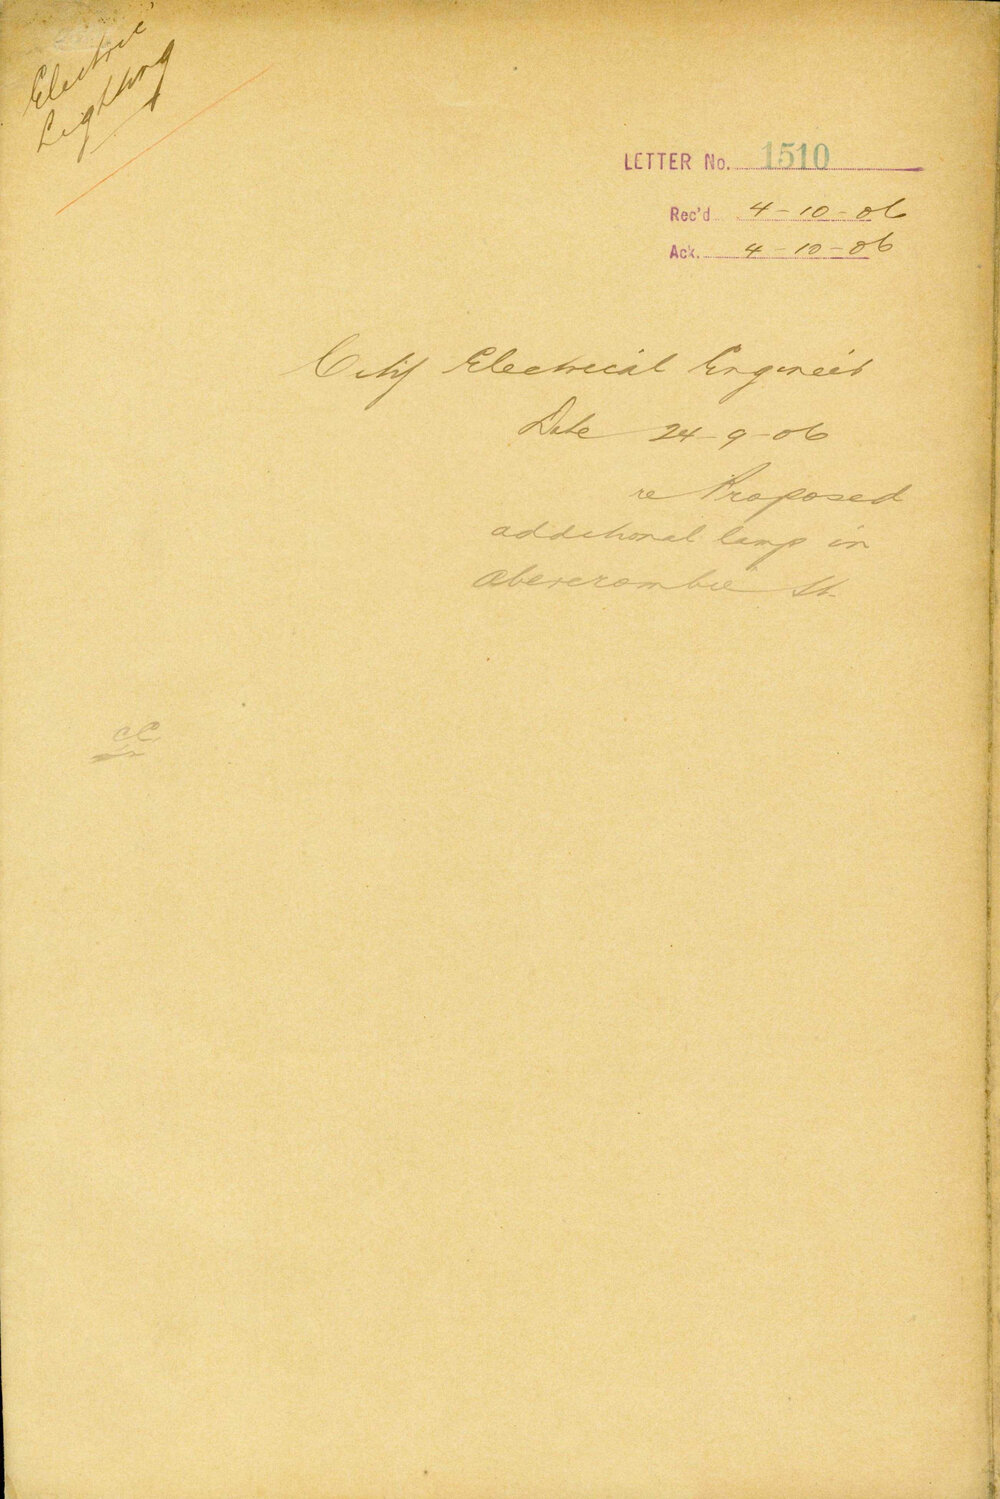 Electric
Lighting
LETTER No. 1510
Rec'd 4-10-06
Ack. 4-10-06
City Electrical Engineer
Date 24-9-06
re Proposed
additional lamp in
Abercrombie St.